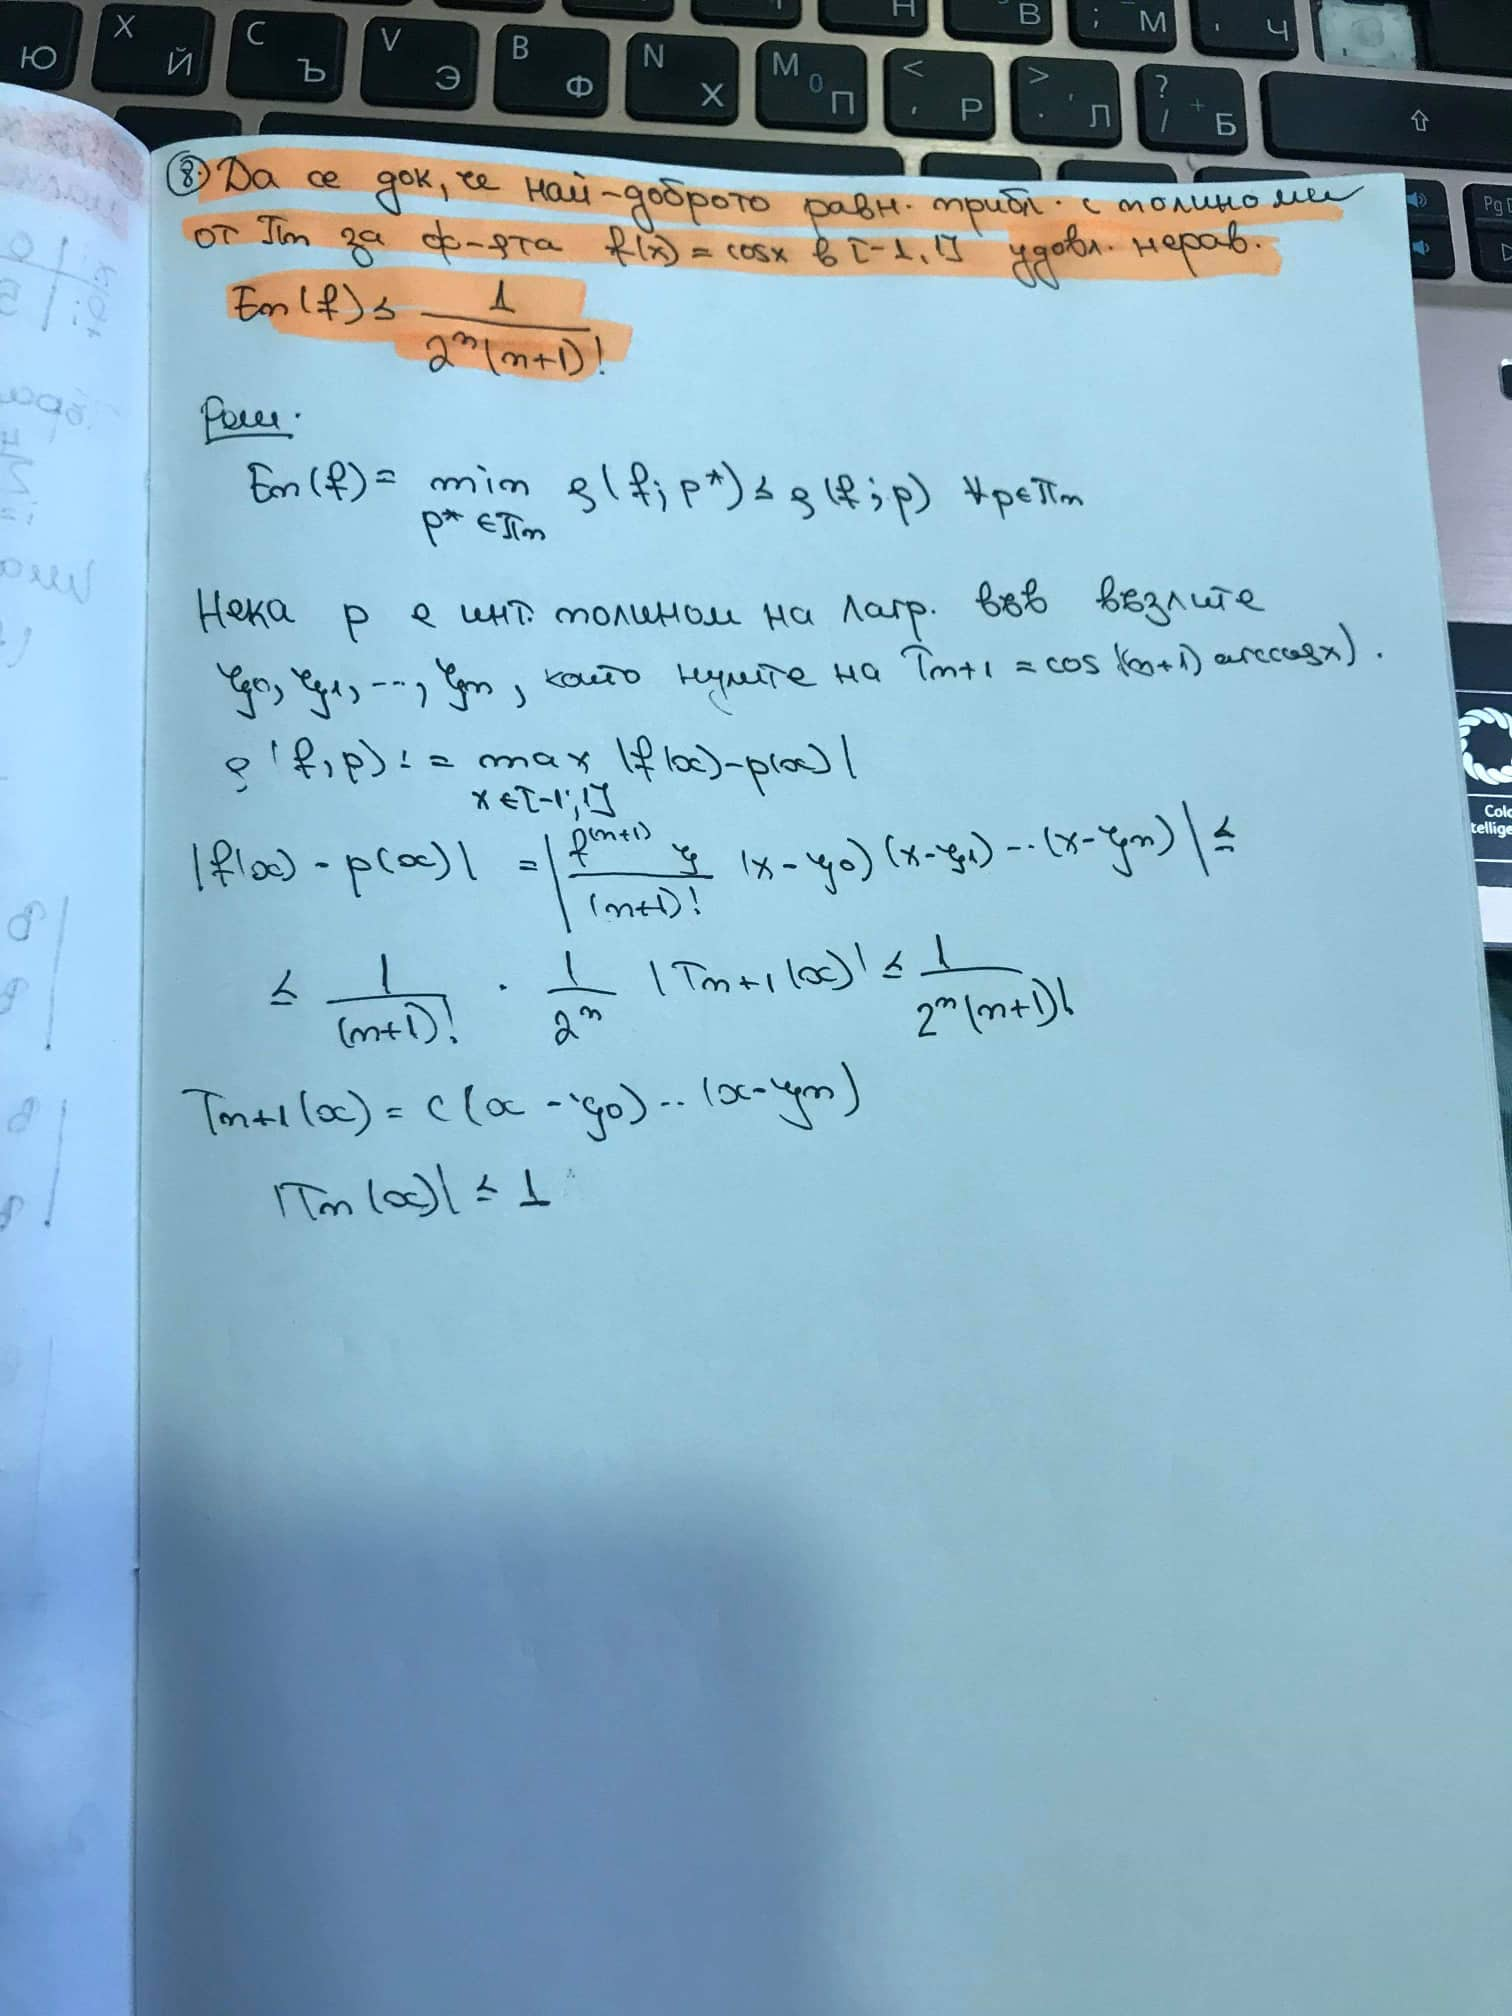 X Й
Ю
C Ъ
V Э
B Ф
N Х
M 0 П
< , Р
> . Л
? / + Б
Н
В
; М
, Ч
⇧
Pg
8. Да се док, че най-доброто равн. прибл. с полиноми
от πn за ф-ята f(x) = cosx в [-1,1] удовл. нерав.
En(f) ≤ 1 / 2^n (n+1)!
Реш.
En(f) = min ρ(f; p*) ≤ ρ(f; p) ∀p∈πn
p* ∈ πn
Нека p е инт. полином на Лагр. във възлите
ξ0, ξ1, ..., ξn, които нулите на Tn+1 = cos((n+1) arccosx).
ρ(f,p) := max |f(x)-p(x)|
x∈[-1;1]
|f(x) - p(x)| = | f^(n+1) ξ / (n+1)! (x-ξ0)(x-ξ1)...(x-ξn) | ≤
≤ 1 / (n+1)! · 1 / 2^n |Tn+1(x)| ≤ 1 / 2^n (n+1)!
Tn+1(x) = c(x-ξ0)..(x-ξn)
|Tn(x)| ≤ 1